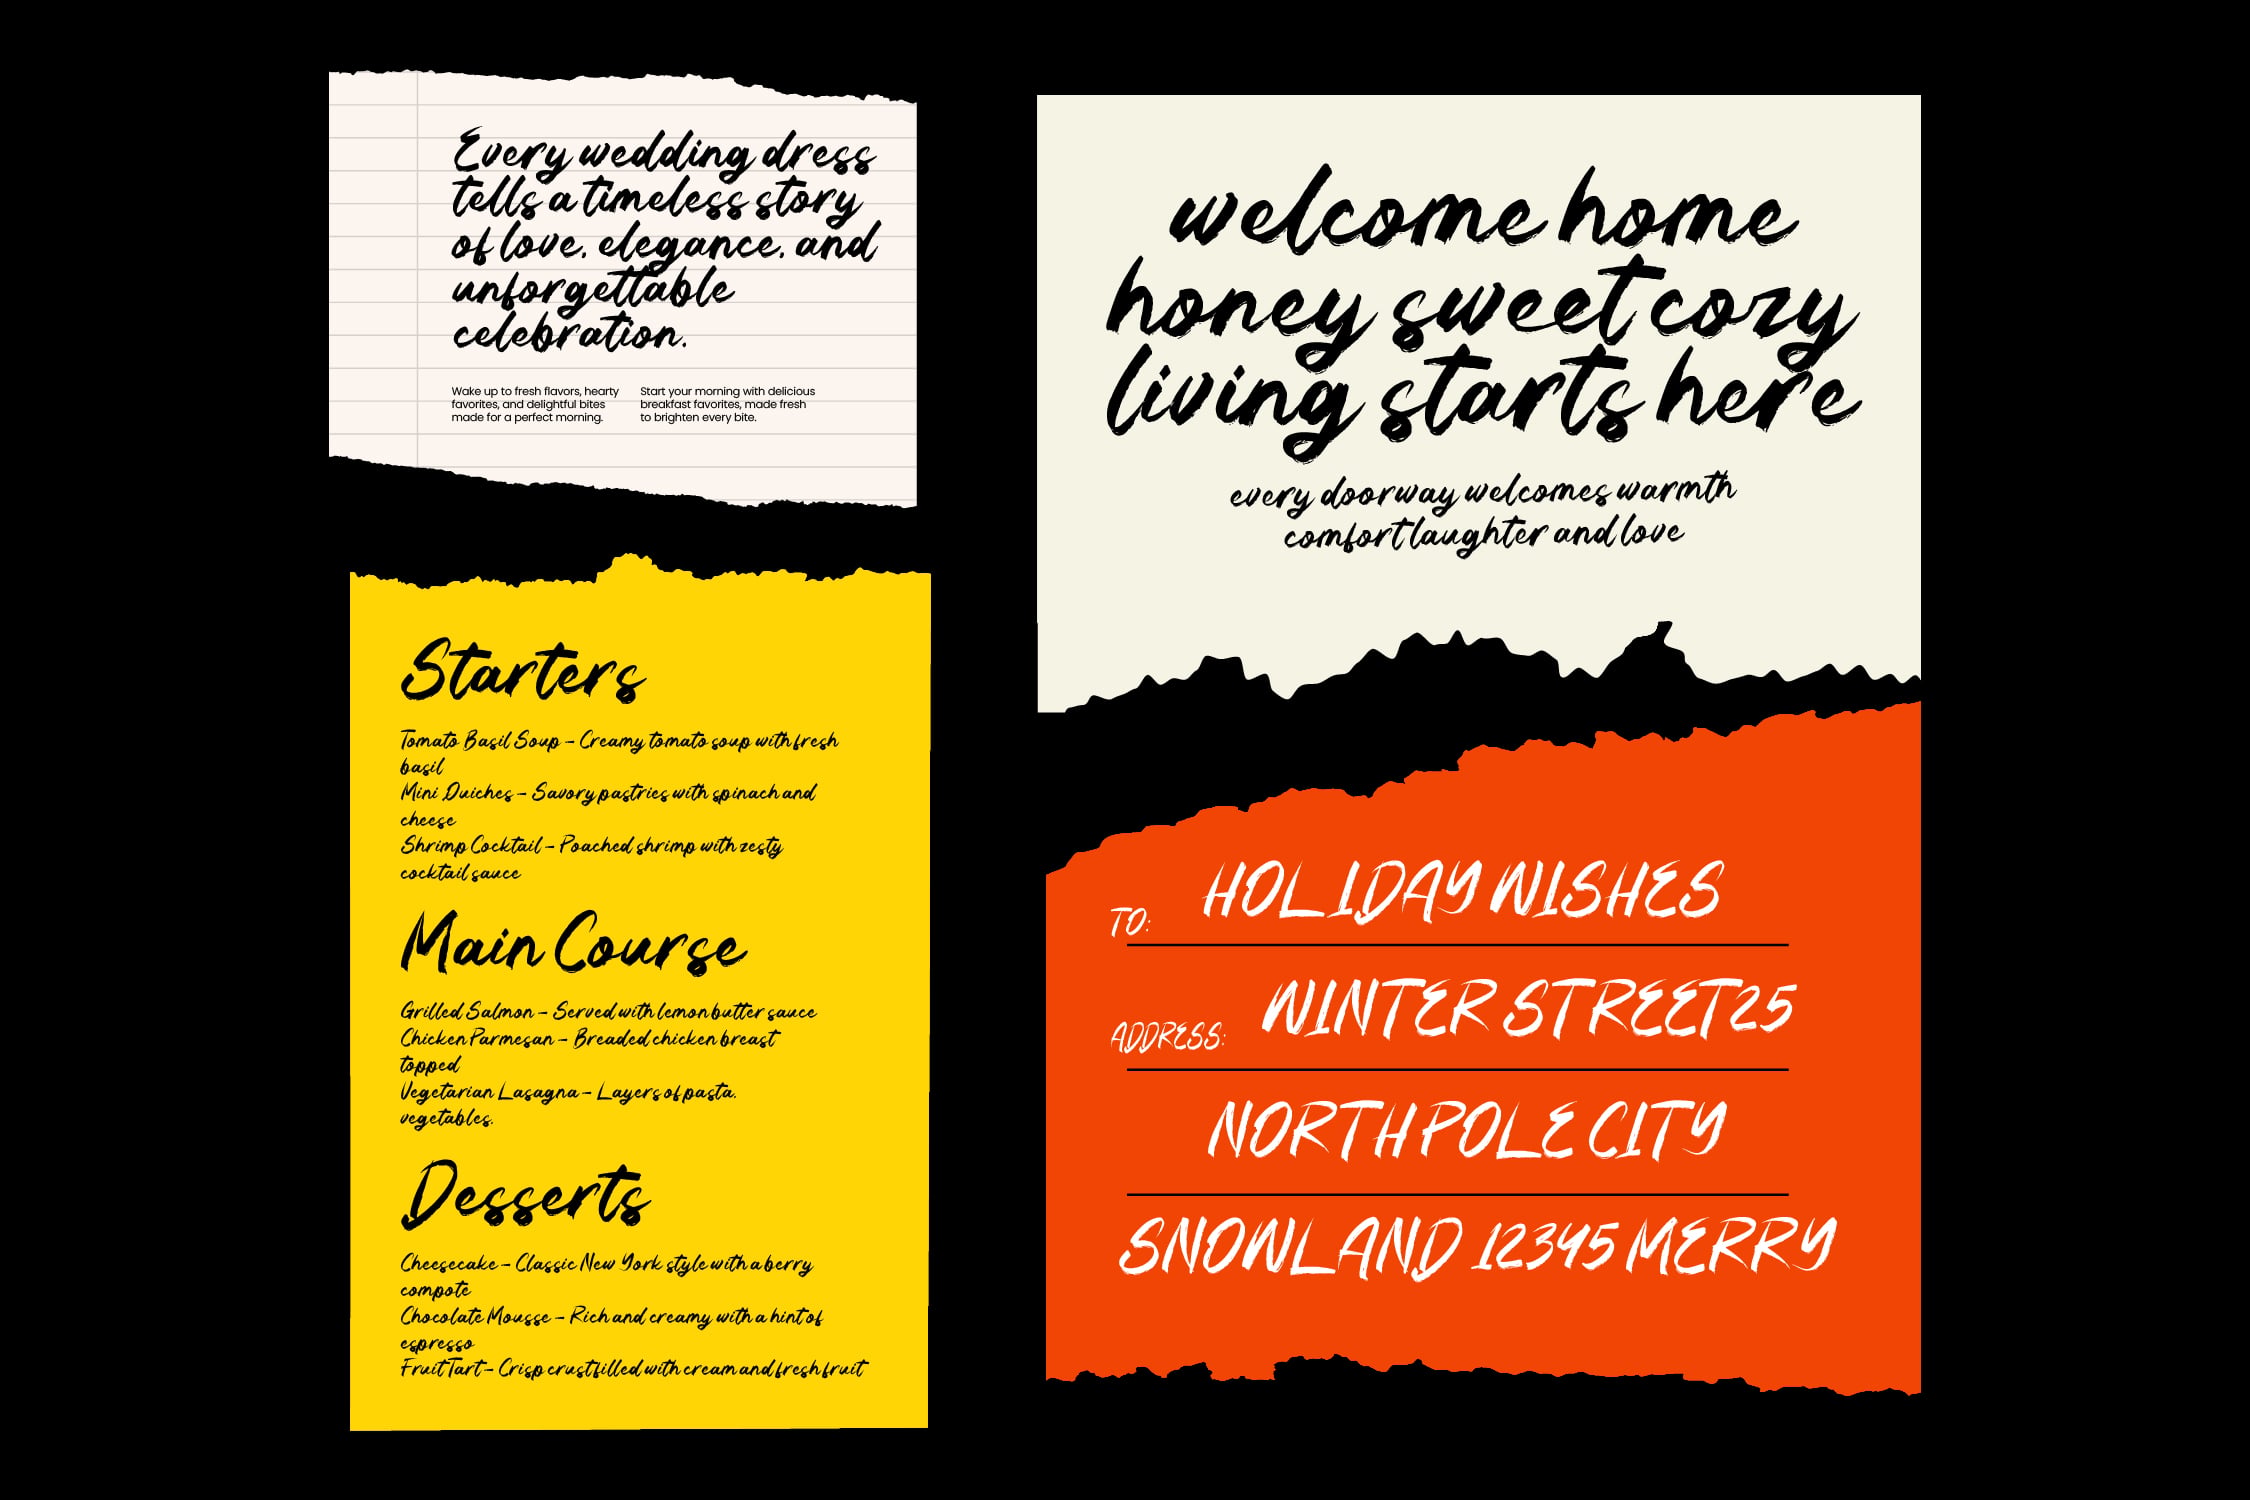 Every wedding dress
tells a timeless story
of love, elegance, and
unforgettable
celebration.
Wake up to fresh flavors, hearty
favorites, and delightful bites
made for a perfect morning.
Start your morning with delicious
breakfast favorites, made fresh
to brighten every bite.
Starters
Tomato Basil Soup – Creamy tomato soup with fresh
basil
Mini Quiches – Savory pastries with spinach and
cheese
Shrimp Cocktail – Poached shrimp with zesty
cocktail sauce
Main Course
Grilled Salmon – Served with lemon butter sauce
Chicken Parmesan – Breaded chicken breast
topped
Vegetarian Lasagna – Layers of pasta,
vegetables,
Desserts
Cheesecake – Classic New York style with a berry
compote
Chocolate Mousse – Rich and creamy with a hint of
espresso
Fruit Tart – Crisp crust filled with cream and fresh fruit
welcome home
honey sweet cozy
living starts here
every doorway welcomes warmth
comfort laughter and love
TO: HOLIDAY WISHES
ADDRESS: WINTER STREET 25
NORTH POLE CITY
SNOWLAND 12345 MERRY